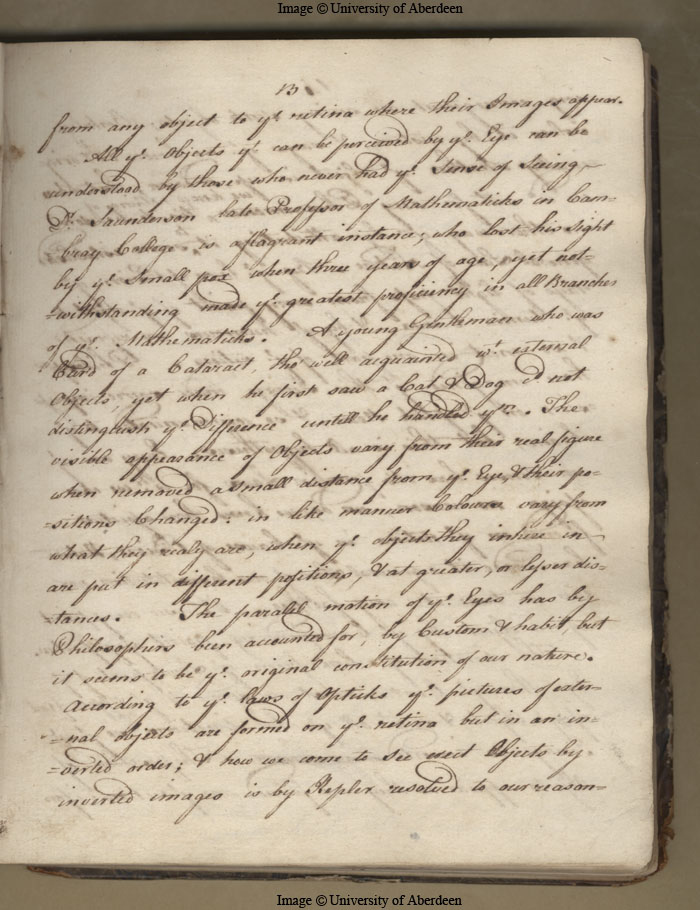 Image © University of Aberdeen
13
from any object to ye. retina where their Images appear.
All ye. Objects yt. can be perceived by ye. Eye can be
understood by those who never had ye. Sense of Seeing
Dr. Saunderson late Professor of Mathematicks in Cam=
bray College is a flagrant instance; who lost his sight
by ye. Small pox when three years of age, yet not=
=withstanding made ye. greatest proficiency in all Branches
of ye. Mathematicks. A young Gentleman who was
Cured of a Cataract, tho well acquainted wt. external
Objects, yet when he first saw a Cat & Dog d not
distinguish ye. Difference untill he handled ym. The
visible appearance of Objects vary from their real figure
when removed a small distance from ye. Eye, & their po=
=sitions Changed: in like manner Colours vary from
what they realy are, when ye. objects they inhere in
are put in different positions, & at greater, or lesser dis=
=tances. The parallel motion of ye. Eyes has by
Philosophers been accounted for, by Custom & habit, but
it seems to be ye. original constitution of our nature.
According to ye. laws of Opticks ye. pictures of exter=
=nal objects are formed on ye. retina but in an in=
=verted order; & how we come to see erect Objects by
inverted images is by Kepler resolved to our reason=
Image © University of Aberdeen